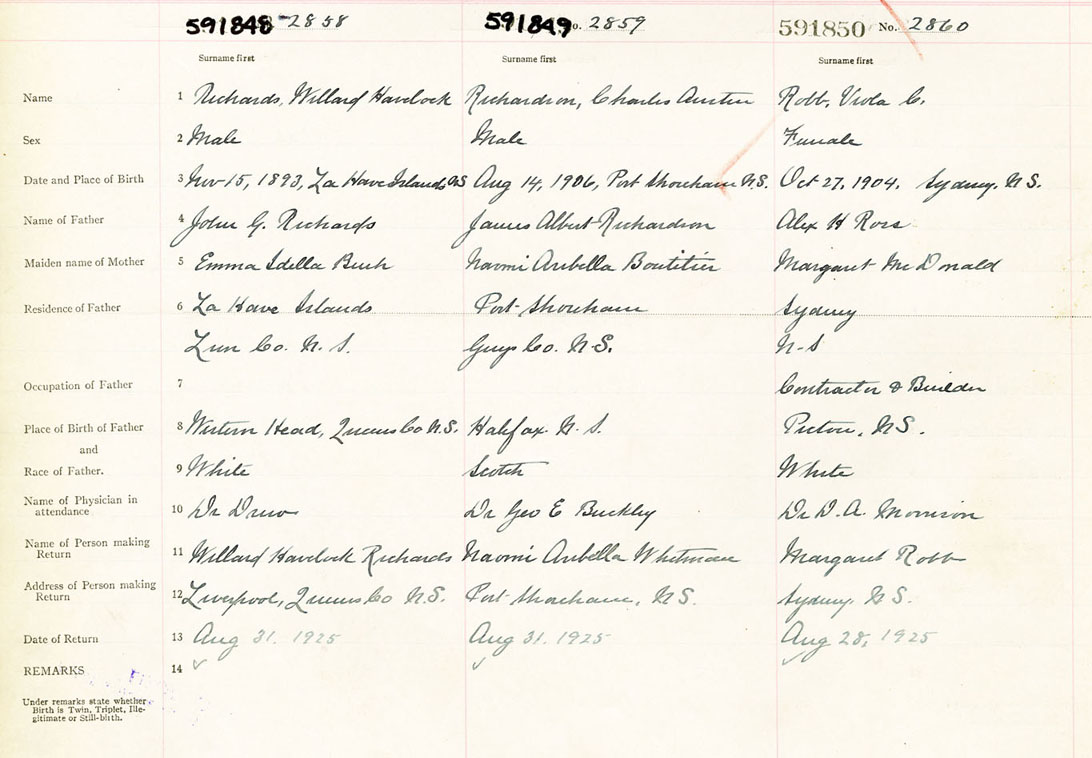 591848 2858 591849 No. 2859 591850 No. 2860
Surname first Surname first Surname first
Name 1 Richards, Willard Havelock Richardson, Charles Austin Robb, Viola C.
Sex 2 Male Male Female
Date and Place of Birth 3 Nov-15, 1893, La Have Islands N.S Aug 14, 1906, Port Shoreham N.S. Oct 27, 1904, Sydney, N.S.
Name of Father 4 John G. Richards James Albert Richardson Alex H Ross
Maiden name of Mother 5 Emma Idella Bush Naomi Aribella Boutilier Margaret McDonald
Residence of Father 6 La Have Islands Port Shoreham Sydney
Lun Co. N.S. Guys Co. N.S. N-S
Occupation of Father 7 Contractor & Builder
Place of Birth of Father 8 Western Head, Queens Co N.S. Halifax N.S. Pictou, N.S.
and
Race of Father. 9 White Scotch White
Name of Physician in
attendance 10 Dr Drew Dr Geo E Buckley Dr D.A. Morrison
Name of Person making
Return 11 Willard Havelock Richards Naomi Aribella Whitman Margaret Robb
Address of Person making
Return 12 Liverpool, Queens Co N.S. Port Shoreham, N.S. Sydney, N.S.
Date of Return 13 Aug 31. 1925 Aug 31. 1925 Aug 28, 1925
REMARKS 14
Under remarks state whether
Birth is Twin, Triplet, Ille-
gitimate or Still-birth.